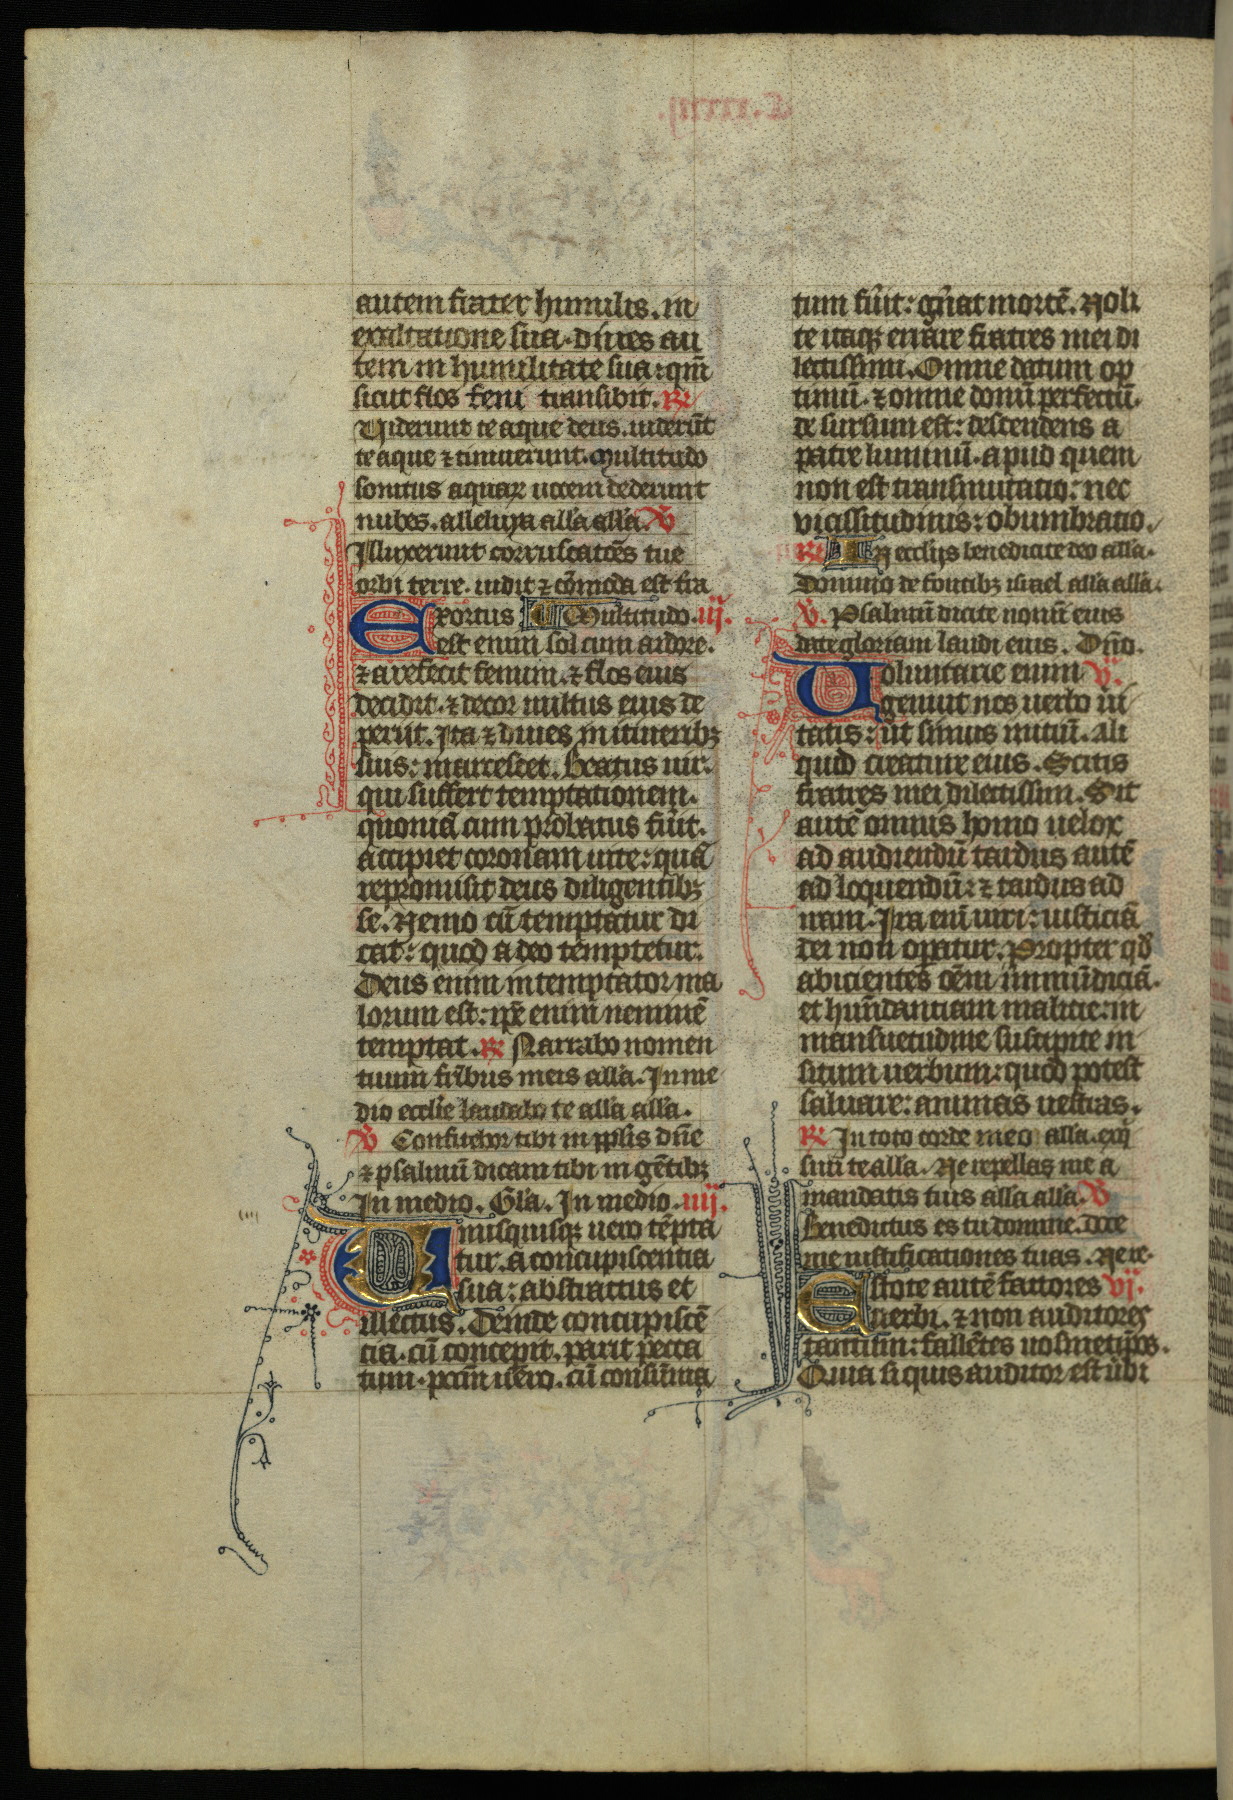 autem frater humilis. in
exaltatione sua. diues au
tem in humilitate sua: qm̄
sicut flos feni transibit. R
Uiderunt te aque deus. uiderūt
te aque ⁊ timuerunt. multitudo
sonitus aquaꝝ uocem dederunt
nubes. alleluya all'a all'a. V
Illuxerunt corruscatōes tue
orbi terre. uidit ⁊ cōmota est t̄ra
Exortus Multitudo. iij.
est enim sol cum ardore.
⁊ arefecit fenum. ⁊ flos eius
decidit. ⁊ decor uultus eius de
periit. Ita ⁊ diues in itineribꝫ
suis: marcescet. Beatus uir.
qui suffert temptationem.
quoniā cum probatus fuīt.
accipiet coronam uite: quā
repromisit deus diligentibꝫ
se. Nemo cū temptatur di
cat: quod a deo temptetur.
Deus enim intemptator ma
lorum est: ip̄e enim neminē
temptat. R Narrabo nomen
tuum fr̄ibus meis all'a. In me
dio eccl'ie laudabo te all'a all'a.
V Confitebor tibi in ppl'is dn̄e
⁊ psalmū dicam tibi in gētibꝫ
In medio. Gl'a. In medio. iiij.
Unusquisqꝫ uero tēpta
tur. a concupiscentia
sua: abstractus et
illectus. Deinde concupiscē
cia. cū conceperit. parit pecca
tum. pccm̄ uēro. cū consūma
tum fuīt: gn̄at mortē. Noli
te itaqꝫ errare fratres mei di
lectissimi. Omne datum op
timū. ⁊ omne donū perfectū.
de sursum est: descendens a
patre luminū. apud quem
non est transmutatio: nec
vicissitudinis: obumbratio.
R In eccl'ijs benedicite deo all'a.
Domino de fontibꝫ israel all'a all'a.
V. Psalmū dicite nomī eius
date gloriam laudi eius. Dn̄o.
Uoluntarie enim V.
genuit nos uerbo ui
tatis: ut simus initiū. ali
quod creature eius. Scitis
fratres mei dilectissimi. Sit
autē omnis homo uelox
ad audiendū tardus autē
ad loquendū: ⁊ tardus ad
iram. Ira enī uiri: iusticiā
dei non opatur. Propter qd̄
abicientes oēm inmūdiciā.
et habundantiam malicie: in
mansuetudine suscipite in
situm uerbum: quod potest
saluare: animas uestras.
R In toto corde meo all'a. exq
siui te all'a. Ne repellas me a
mandatis tuis all'a all'a. V
Benedictus es tu domine. doce
me iustificationes tuas. Ne re.
Estote autē factores vi.
uerbi. ⁊ non auditores
tantūm: fallētes uosmetip̄os.
Quia si quis auditor est ūbi